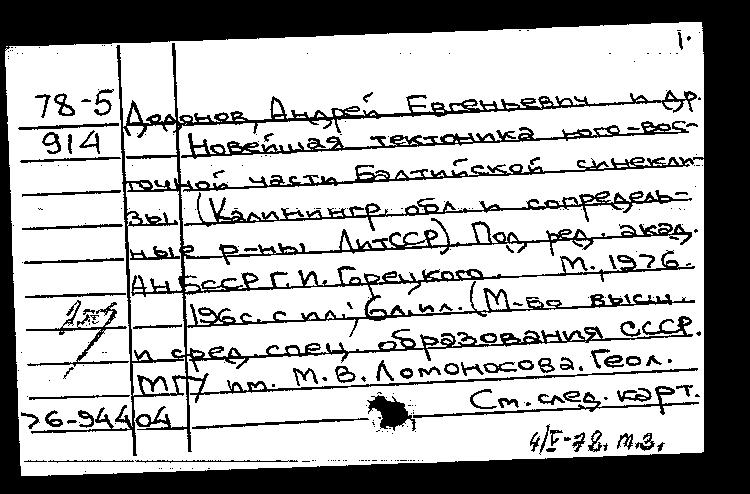 1.
78-5 Додонов, Андрей Евгеньевич и др.
914 Новейшая тектоника юго-вос-
точной части Балтийской синекли-
зы. (Калинингр. обл. и сопредель-
ные р-ны ЛитССР). Под ред. акад.
АН БССР Г. И. Горецкого. М., 1976.
196 с. с ил.; 6 л. ил. (М-во высш.
и сред. спец. образования СССР.
МГУ им. М. В. Ломоносова. Геол.
Ст. след. карт.
76-94404
4/V-78. т.з.